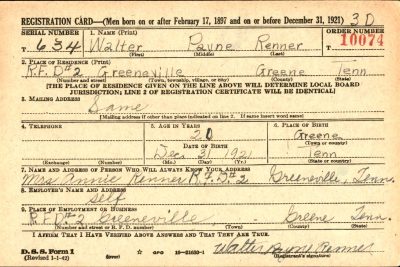 REGISTRATION CARD—(Men born on or after February 17, 1897 and on or before December 31, 1921) 3D
SERIAL NUMBER 1. NAME (Print) ORDER NUMBER
T 634 Walter Payne Renner T 10074
(First) (Middle) (Last)
2. PLACE OF RESIDENCE (Print)
R.F.D#2 Greeneville Greene Tenn
(Number and street) (Town, township, village, or city) (County) (State)
[THE PLACE OF RESIDENCE GIVEN ON THE LINE ABOVE WILL DETERMINE LOCAL BOARD
JURISDICTION; LINE 2 OF REGISTRATION CERTIFICATE WILL BE IDENTICAL]
3. MAILING ADDRESS
Same
[Mailing address if other than place indicated on line 2. If same insert word same]
4. TELEPHONE 5. AGE IN YEARS 6. PLACE OF BIRTH
20 Greene
DATE OF BIRTH (Town or county)
Dec 31 1921 Tenn
(Exchange) (Number) (Mo.) (Day) (Yr.) (State or country)
7. NAME AND ADDRESS OF PERSON WHO WILL ALWAYS KNOW YOUR ADDRESS
Mrs Annie Renner R.F.D#2 Greeneville, Tenn.
8. EMPLOYER'S NAME AND ADDRESS
Self
9. PLACE OF EMPLOYMENT OR BUSINESS
R.F.D#2 Greeneville Greene Tenn.
(Number and street or R. F. D. number) (Town) (County) (State)
I AFFIRM THAT I HAVE VERIFIED ABOVE ANSWERS AND THAT THEY ARE TRUE.
D. S. S. Form 1 GPO 16—21630-1 Walter Payne Renner
(Revised 1-1-42) (over) (Registrant's signature)